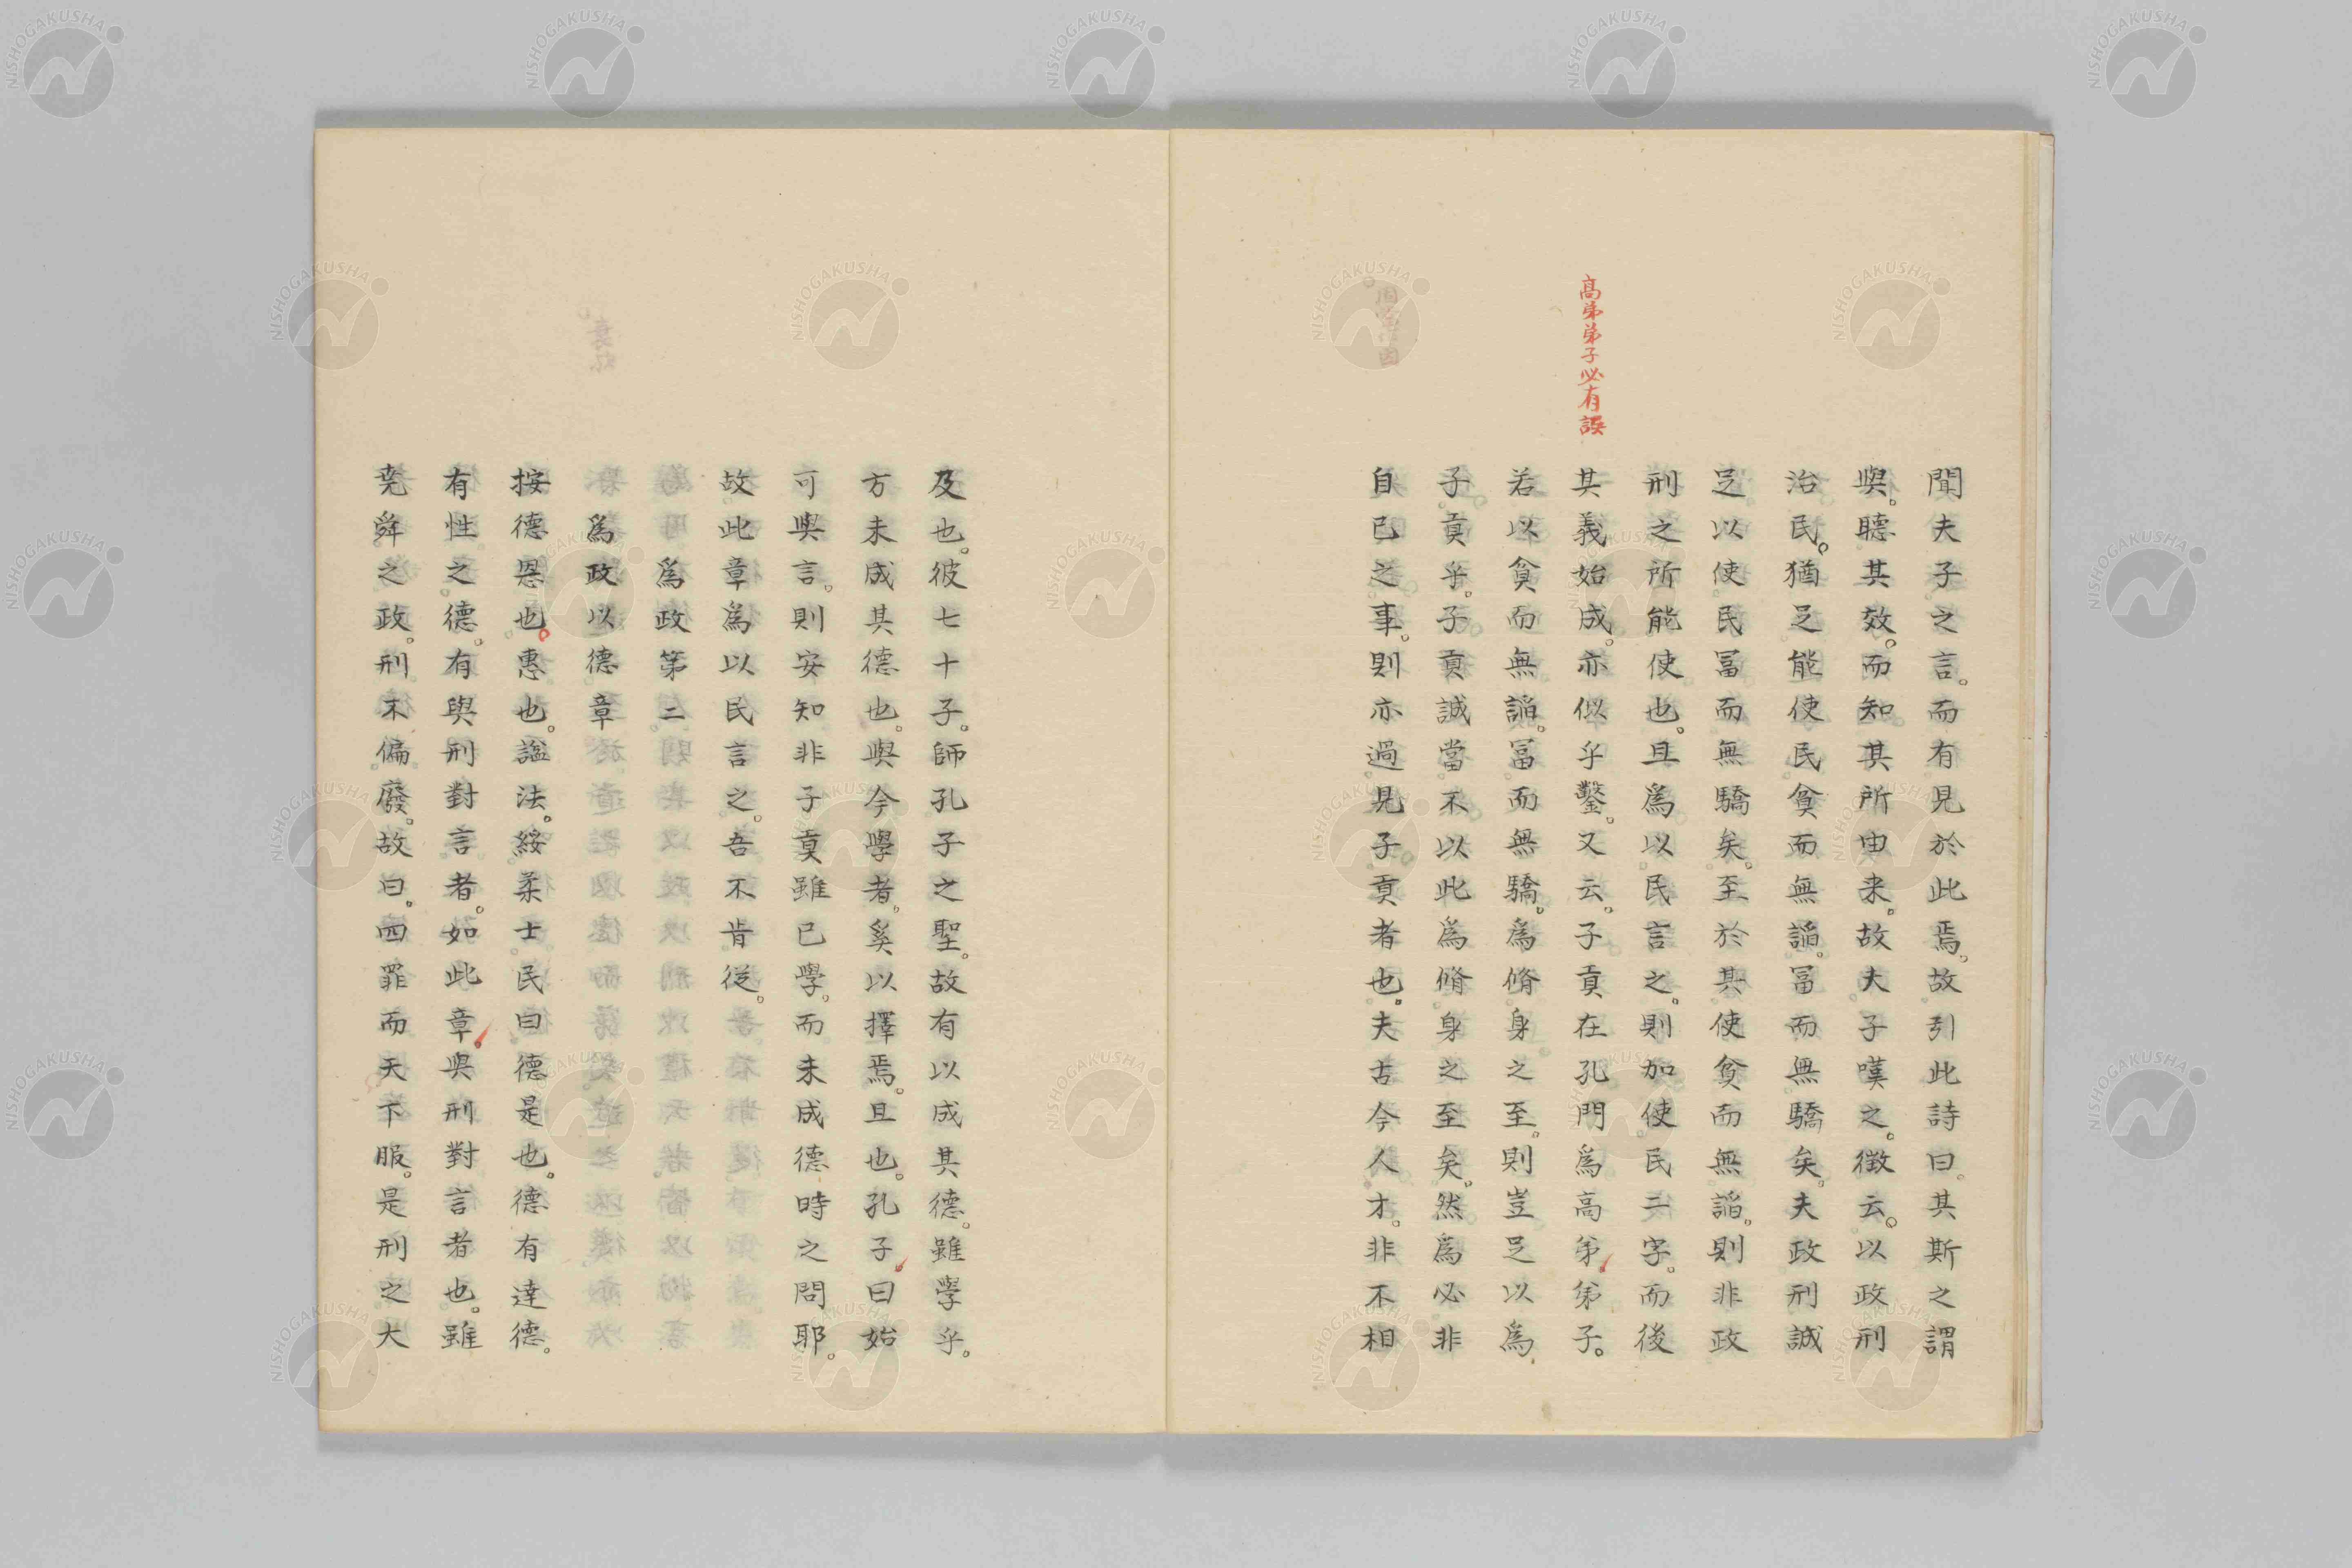 高弟弟子必有誤
聞夫子之言。而有見於此焉。故引此詩曰。其斯之謂
與。聽其效。而知其所由来。故夫子嘆之。徴云。以政刑
治民。猶足能使民貧而無謟。冨而無驕矣。夫政刑誠
足以使民冨而無驕矣。至於其使貧而無謟。則非政
刑之所能使也。且爲以民言之。則加使民二字。而後
其義始成。亦似乎鑿。又云。子貢在孔門爲高弟弟子。
若以貧而無謟。冨而無驕。爲脩身之至。則豈足以爲
子貢乎。子貢誠當不以此爲脩身之至矣。然爲必非
自已之事。則亦過見子貢者也。夫古今人才。非不相
及也。彼七十子。師孔子之聖。故有以成其德。雖學乎。
方未成其德也。與今學者。奚以擇焉。且也。孔子曰始
可與言。則安知非子貢雖已學。而未成德時之問耶。
故此章爲以民言之。吾不肯從。
爲政第二
爲政以德章
按德恩也。惠也。謚法。綏柔士民曰德是也。德有達德。
有性之德。有與刑對言者。如此章與刑對言者也。雖
堯舜之政。刑不偏廢。故曰。四罪而天下服。是刑之大
NISHOGAKUSHA